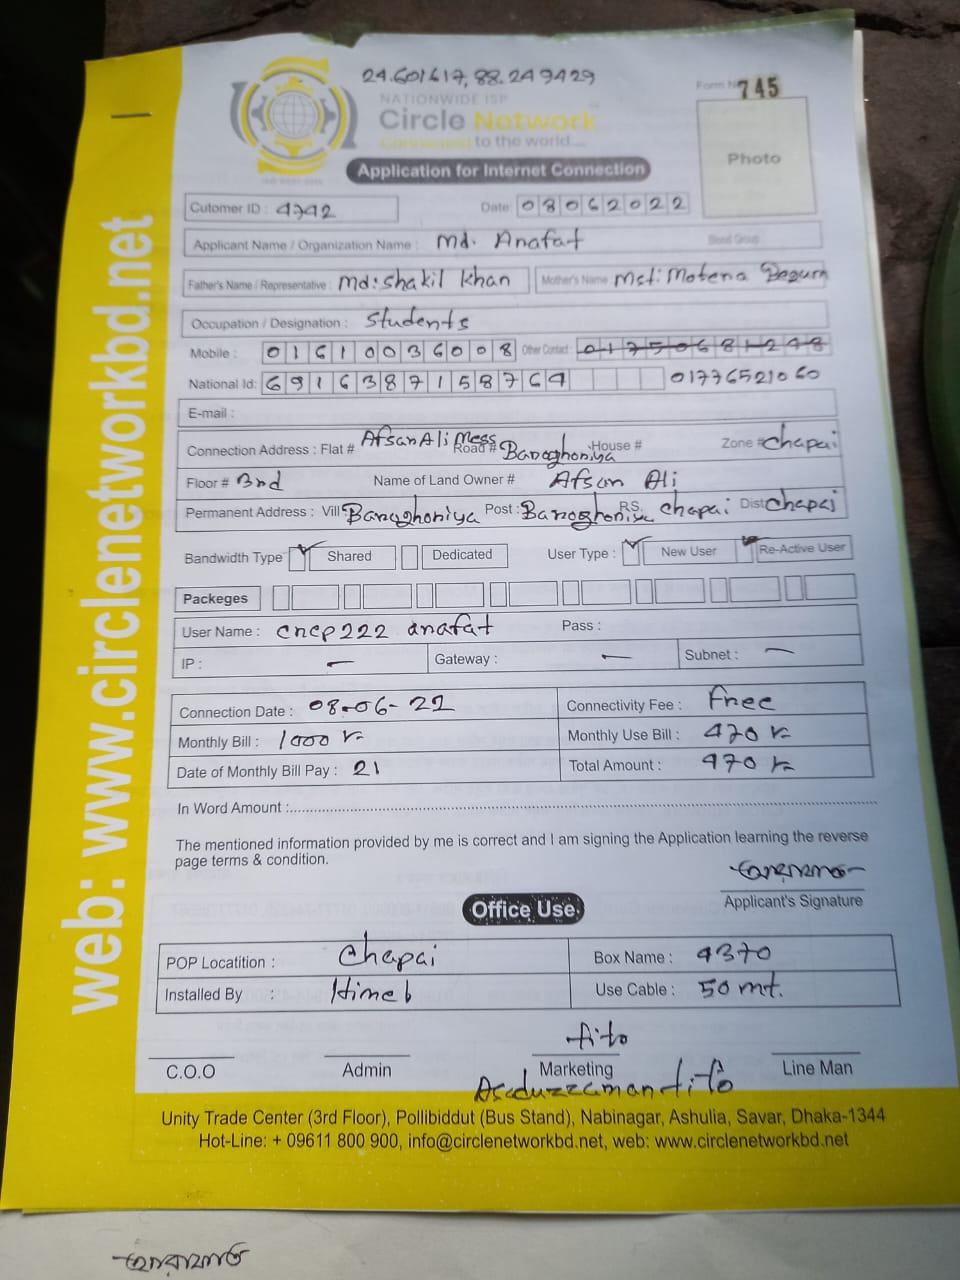 24.601617, 88.249429
Form No 745
NATIONWIDE ISP
Circle Network
Connected to the world....
Photo
Application for Internet Connection
Cutomer ID : 4742 Date 08062022
Applicant Name / Organization Name : Md. Anafat Blood Group
Father's Name / Representative : Md: Shakil Khan Mother's Name Mst: Motena Begum
Occupation / Designation : Students
Mobile : 01610036008 Other Contact : 01750681248
National Id: 6916387158764 01776521060
E-mail :
Connection Address : Flat # Afsan Ali Mess Road # Banoghoniya House # Zone # chapai
Floor # 3nd Name of Land Owner # Afsan Ali
Permanent Address : Vill Banoghoniya Post : Banoghoniya P.S. chapai Dist chapai
Bandwidth Type Shared Dedicated User Type : New User Re-Active User
Packeges
User Name : cncp222 anafat Pass :
IP : — Gateway : — Subnet : —
Connection Date : 08-06-22 Connectivity Fee : Free
Monthly Bill : 1000 Monthly Use Bill : 470
Date of Monthly Bill Pay : 21 Total Amount : 470
In Word Amount :
The mentioned information provided by me is correct and I am signing the Application learning the reverse
page terms & condition.
Applicant's Signature
Office Use.
POP Locatition : Chapai Box Name : 4370
Installed By : Himel Use Cable : 50 mt.
tito
C.O.O Admin Marketing Line Man
Asaduzzaman tito
Unity Trade Center (3rd Floor), Pollibiddut (Bus Stand), Nabinagar, Ashulia, Savar, Dhaka-1344
Hot-Line: + 09611 800 900, info@circlenetworkbd.net, web: www.circlenetworkbd.net
web: www.circlenetworkbd.net